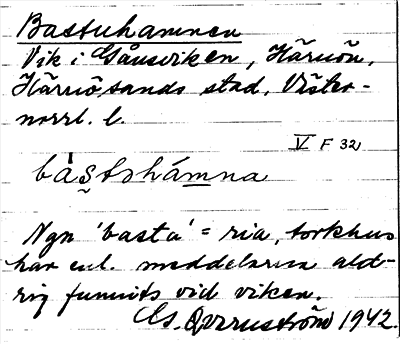 Bastuhamnen
Vik i Gånsviken, Härnön,
Härnösands stad, Väster-
norrl. l.
V F 32
bástshámna
Ngn 'basta' = ria, torkhus
har enl. meddelarna ald-
rig funnits vid viken.
1942.